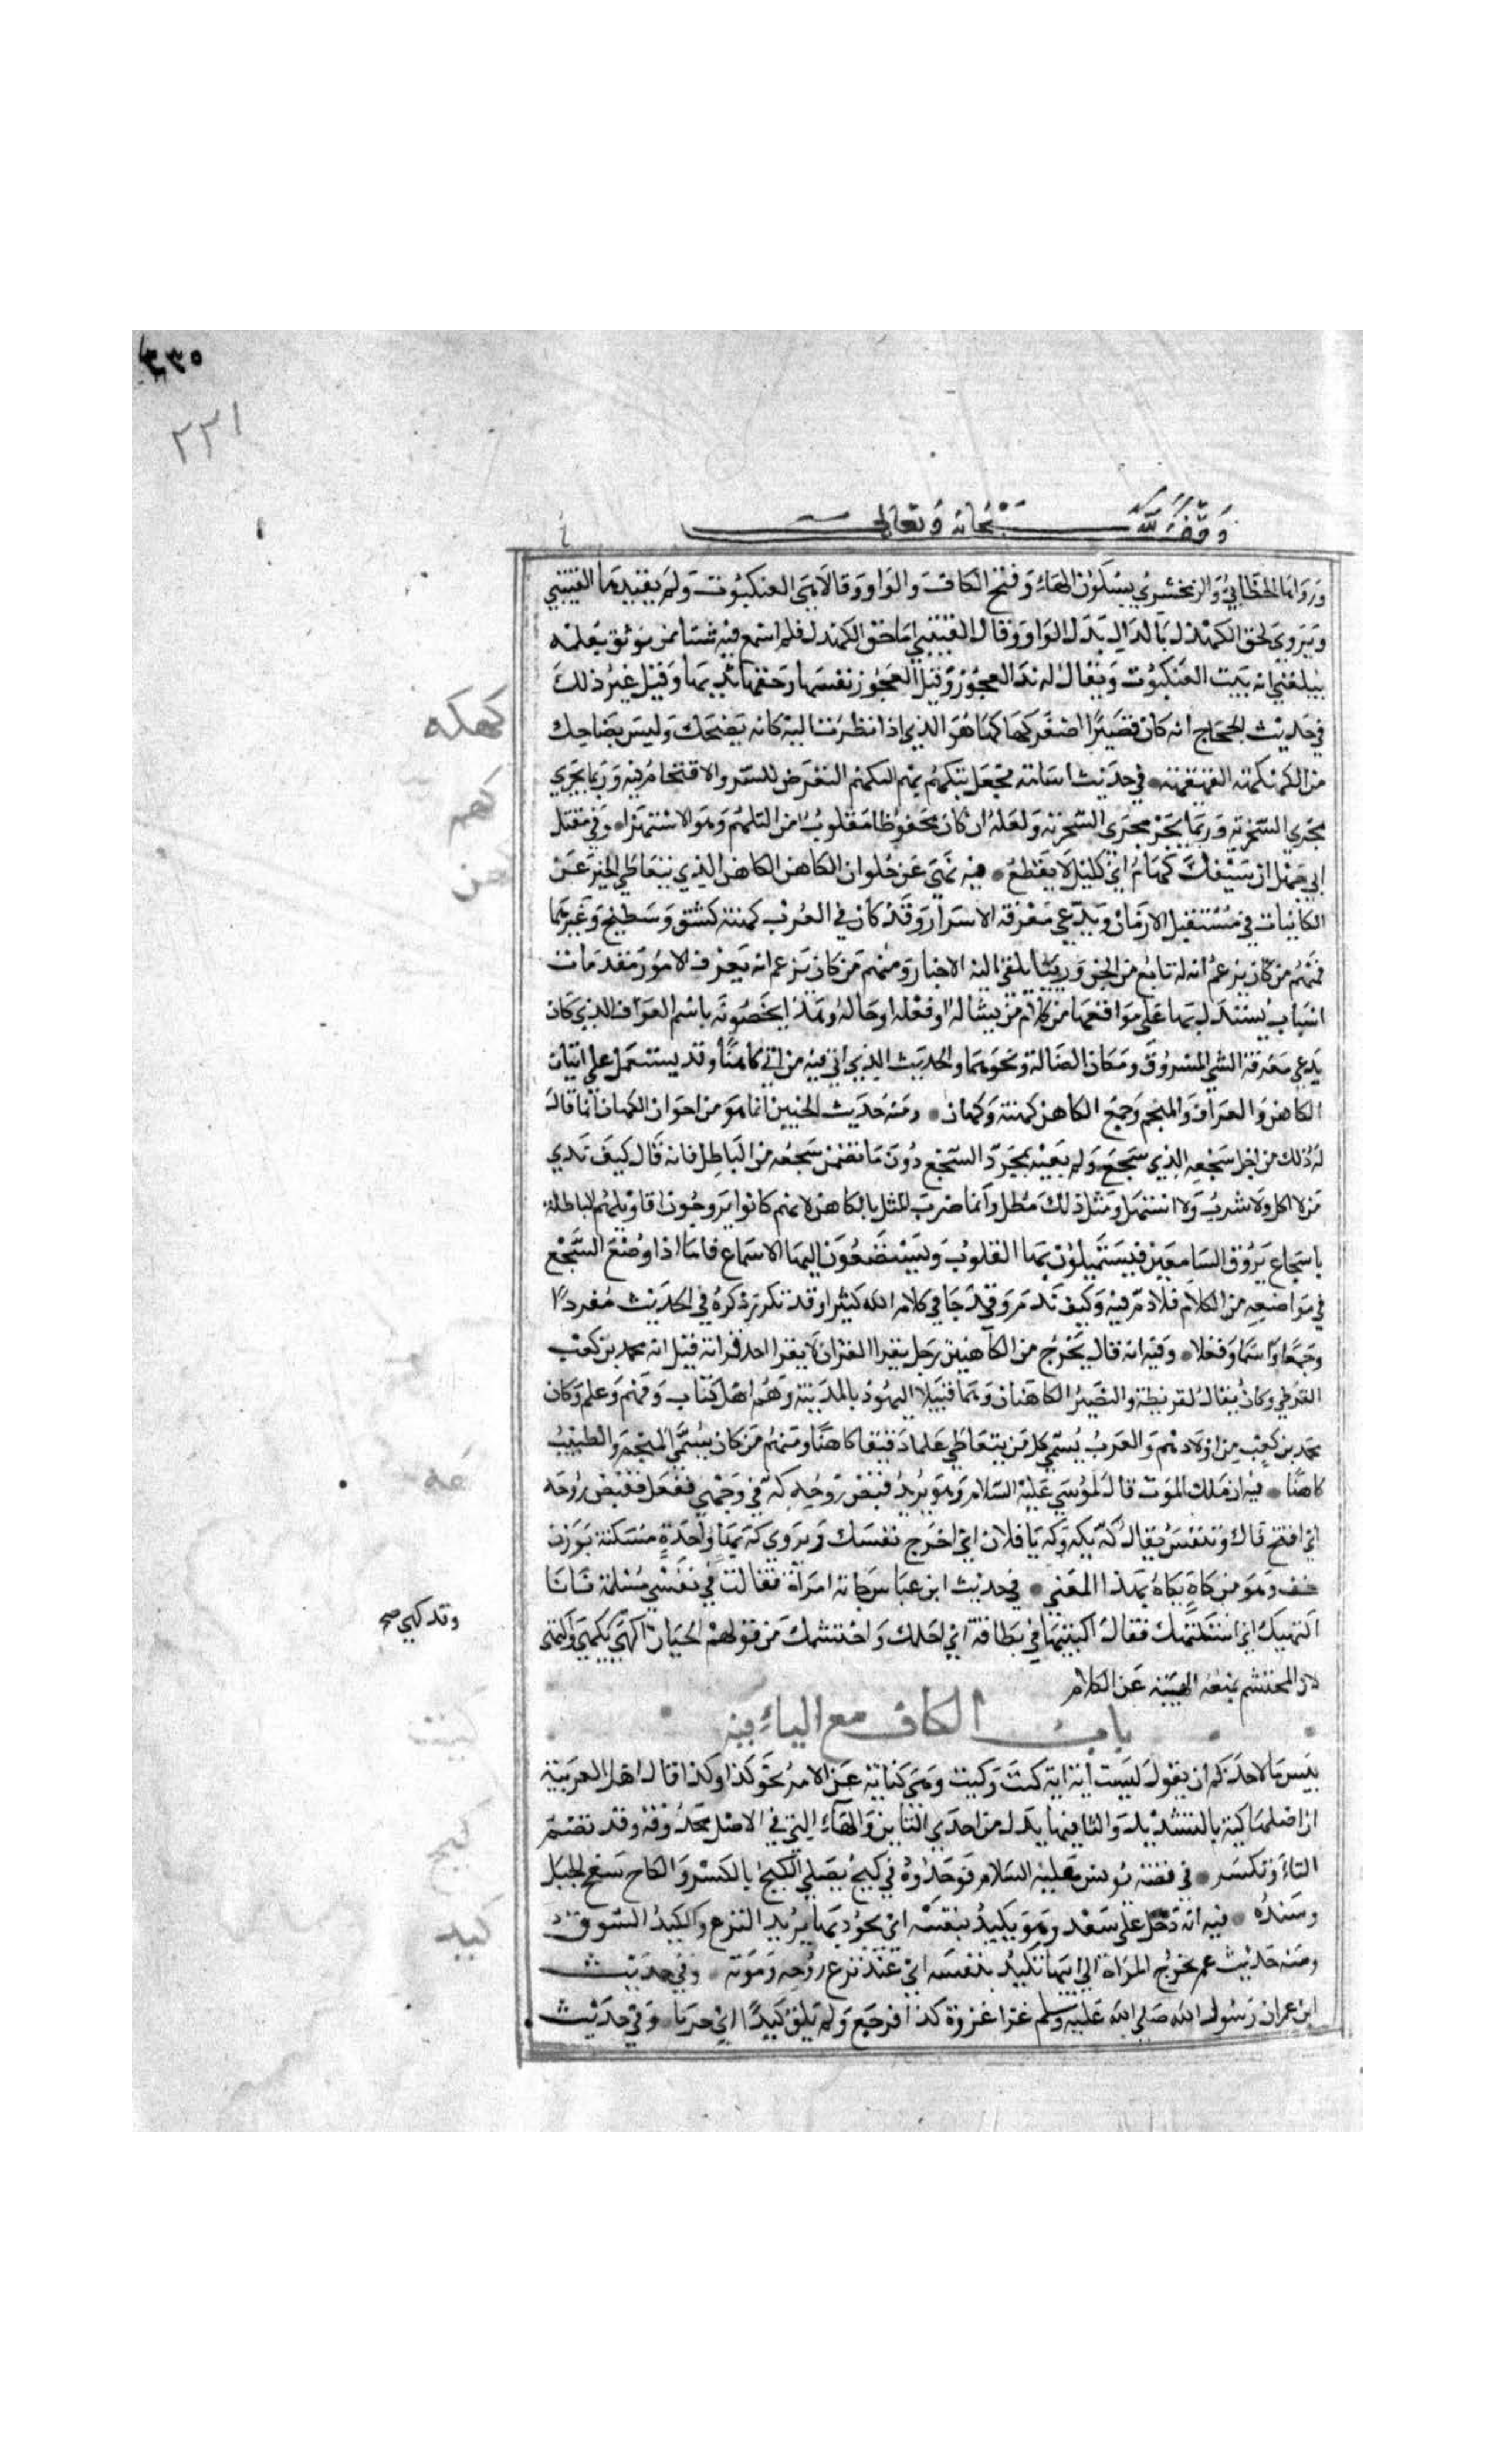 ٣٣٥
٢٢١
وقف لله سبحانه وتعالى
ورواها الخطابي والزمخشري بسكون الهاء وفتح الكاف والواو وقالا هي العنكبوت ولم يقيدها القتيبي
ويروى كحق الكهدل بالدال بدل الواو وقال القتيبي اما حق الكهدل فلم اسمع فيه شيئا ممن يوثق بعلمه
بلغني انه بيت العنكبوت ويقال له ثدي العجوز وقيل العجوز نفسها وحقها ثديها وقيل غير ذلك
في حديث الحجاج انه كان قصيرا اصفر كهاكها هو الذي اذا نظرت اليه كانه يضحك وليس بضاحك
من الكهكهة القهقهة في حديث اسامة فجعل يتكهم بهم التكهم التعرض للشر والاقتحام فيه وربما يجري
مجرى السخرية وربما يجر مجرى السخرية ولعله ان كان محفوظا مقلوب من التهكم وهو الاستهزاء وفي مقتل
ابي جهل ان سيفك كهام اي كليل لا يقطع فيه نهى عن حلوان الكاهن الكاهن الذي يتعاطى الخبر عن
الكاينات في مستقبل الازمان ويدعي معرفة الاسرار وقد كان في العرب كهنة كشق وسطيح وغيرهما
فمنهم من كان يزعم ان له تابعا من الجن ورييا يلقي اليه الاخبار ومنهم من كان يزعم انه يعرف الامور بمقدمات
اسباب يستدل بها على مواقعها من كلام من يساله او فعله او حاله وهذا يخصونه باسم العراف الذي كان
يدعي معرفة الشي المسروق ومكان الضالة ونحوهما والحديث الذي اتي فيه من اتى كاهنا وقد يشتمل على اتيان
الكاهن والعراف والمنجم وجمع الكاهن كهنة وكهان ومنه حديث الجنين انما هو من اخوان الكهان انما قال
له ذلك من اجل سجعه الذي سجع ولم يعبه بمجرد السجع دون ما تضمن سجعه من الباطل فانه قال كيف ندي
من لا اكل ولا شرب ولا استهل ومثل ذلك يطل وانما ضرب المثل بالكاهن لانهم كانوا يروجون اقاويلهم الباطلة
باسجاع يروق السامعين فيستميلون بها القلوب ويستصغون اليها الاسماع فاما اذا وضع السجع
في مواضعه من الكلام فلا ذم فيه وكيف يذم وقد جا في كلام الله كثيرا وقد تكرر ذكره في الحديث مفردا
وجمعا واسما وفعلا وفيه انه قال يخرج من الكاهنين رجل يقرا القران لا يقرا احد قراته قيل انه محمد بن كعب
القرظي وكان يقال لقريظة والنضير الكاهنان وهما قبيلا اليهود بالمدينة وهم اهل كتاب وفهم وعلم وكان
محمد بن كعب من اولادهم والعرب يسمي كل من يتعاطى علما دقيقا كاهنا ومنهم من كان يسمى المنجم والطبيب
كاهنا فيه ان ملك الموت قال لموسى عليه السلام وهو يريد قبض روحه كه في وجهي ففعل فقبض روحه
اي افتح فاك وتنفس يقال كه يكه وكه يا فلان اي اخرج نفسك ويروى كه بهاء واحدة مسكنة بوزن
خف وهو من كاه يكاه بهذا المعنى في حديث ابن عباس جاته امراة فقالت في نفسي مسلة فانا
اكتهيك اي استكتهك فقال اكتبيها في بطاقة اي اجلك واحتشمك من قولهم للجبان اكهى يكهى واكتهى
لان المحتشم تمنعه الهيبة عن الكلام
باب الكاف مع الياء فيه
بئس ما لاحدكم ان يقول نسيت آية اية كيت وكيت وهي كناية عن الامر نحو كذا وكذا قال اهل العربية
ان اصلها كية بالتشديد والتا فيها بدل من احدي التائين والهاء التي في الاصل محذوفة وقد تضم
التاء وتكسر في قصة يونس عليه السلام فوجدوه في كيح يصلي الكيح بالكسر والكاح سفح الجبل
وسنده فيه انه دخل على سعد وهو يكيد بنفسه اي يجود بها يريد النزع والكيد السوق
ومنه حديث عمر تخرج المراة الى ابيها تكيد بنفسه اي عند نزع روحه وموته وفي حديث
ابن عمر ان رسول الله صلى الله عليه وسلم غزا غزوة كذا فرجع ولم يلق كيدا اي حربا وفي حديث
كهكه
كهم
كهن
كهه
وقد كهي صح
كيت
كيح
كيد